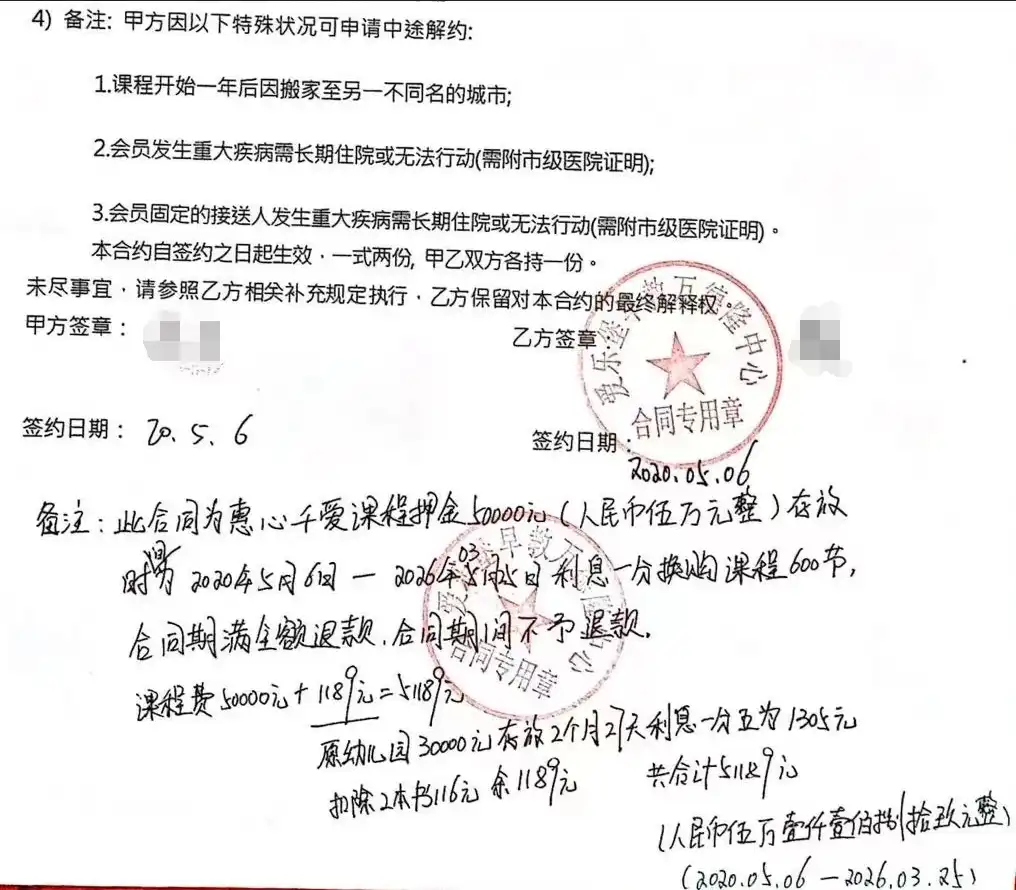 4) 备注: 甲方因以下特殊状况可申请中途解约:
1.课程开始一年后因搬家至另一不同名的城市;
2.会员发生重大疾病需长期住院或无法行动(需附市级医院证明);
3.会员固定的接送人发生重大疾病需长期住院或无法行动(需附市级医院证明)。
本合约自签约之日起生效·一式两份, 甲乙双方各持一份。
未尽事宜·请参照乙方相关补充规定执行·乙方保留对本合约的最终解释权。
甲方签章:
乙方签章:
爱乐堡早教万德隆中心
合同专用章
签约日期: 20.5.6
签约日期:
2020.05.06
备注:此合同为惠心千爱课程押金50000元(人民币伍万元整)存放
时间 2020年5月6日 — 2026年03月25日 利息一分换购课程600节,
合同期满全额退款,合同期间不予退款.
合同专用章
课程费50000元+1189元=51189元
原幼儿园30000元存放2个月27天利息一分五为1305元
扣除2本书116元 余1189元
共合计51189元
(人民币伍万壹仟壹佰捌拾玖元整)
(2020.05.06 — 2026.03.25)